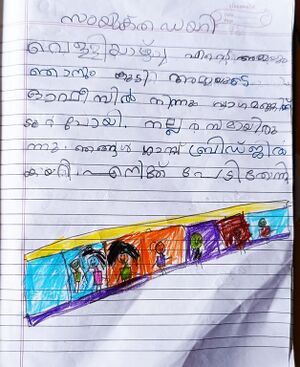 സംയുക്ത ഡയറി
വെള്ളിയാഴ്ച്ച എന്റെ അമ്മയും
ഞാനും കൂടി അമ്മയുടെ
ഓഫീസിൽ നിന്നും വാഗമണ്ണിൽ
ടൂർ പോയി. നല്ല രസമായിരു
ന്നു. ഞങ്ങൾ ഗ്ലാസ് ബ്രിഡ്ജിൽ
കയറി. എനിക്ക് പേടിതോന്നി